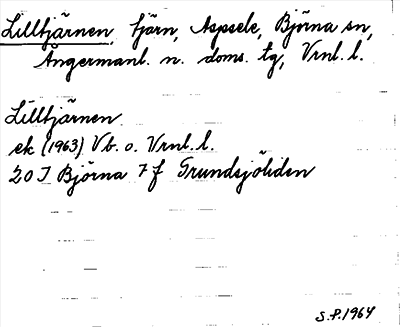 Lilltjärnen, tjärn, Aspsele, Björna sn,
Ångermanl. n. doms. tg, Vrnl. l.
Lilltjärnen
ek (1963) Vb. o. Vrnl. l.
20 I Björna 7 f Grundsjöliden
S.P. 1964